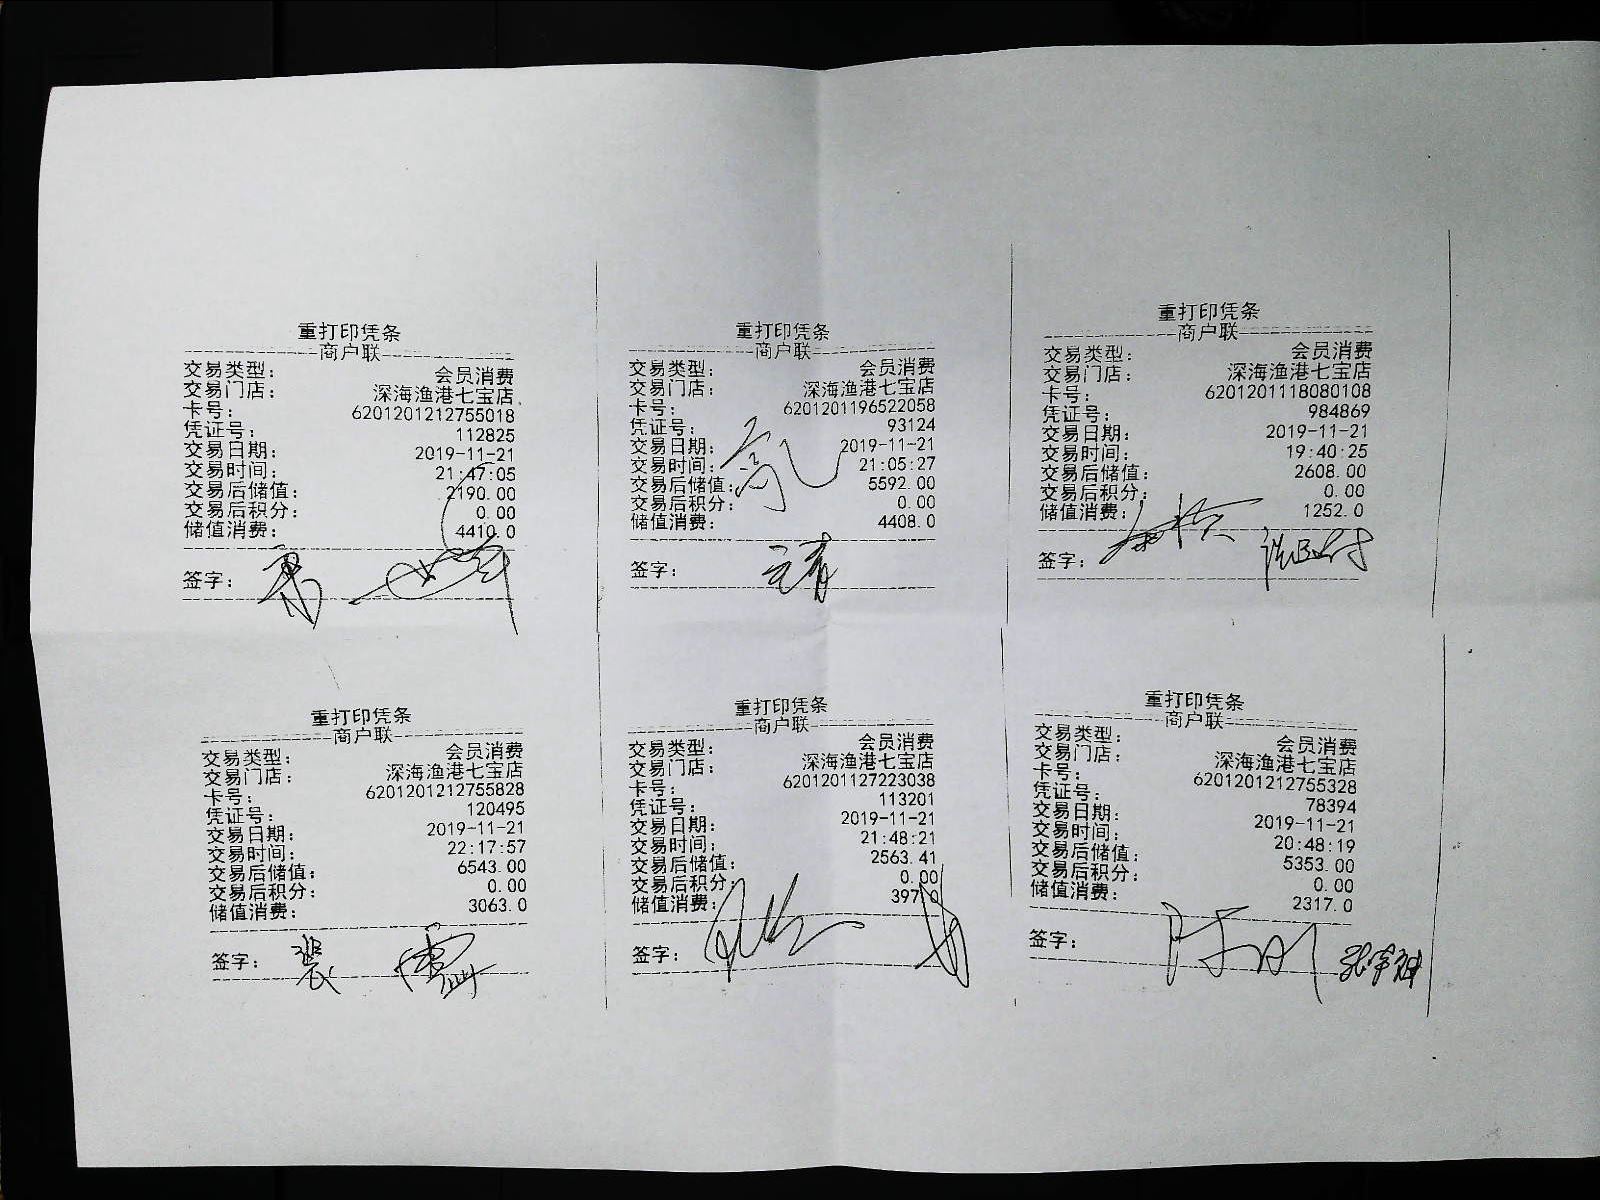 重打印凭条
商户联
交易类型: 会员消费
交易门店: 深海渔港七宝店
卡号: 6201201212755018
凭证号: 112825
交易日期: 2019-11-21
交易时间: 21:47:05
交易后储值: 2190.00
交易后积分: 0.00
储值消费: 4410.0
签字:
重打印凭条
商户联
交易类型: 会员消费
交易门店: 深海渔港七宝店
卡号: 6201201196522058
凭证号: 93124
交易日期: 2019-11-21
交易时间: 21:05:27
交易后储值: 5592.00
交易后积分: 0.00
储值消费: 4408.0
签字:
重打印凭条
商户联
交易类型: 会员消费
交易门店: 深海渔港七宝店
卡号: 6201201118080108
凭证号: 984869
交易日期: 2019-11-21
交易时间: 19:40:25
交易后储值: 2608.00
交易后积分: 0.00
储值消费: 1252.0
签字:
重打印凭条
商户联
交易类型: 会员消费
交易门店: 深海渔港七宝店
卡号: 6201201212755828
凭证号: 120495
交易日期: 2019-11-21
交易时间: 22:17:57
交易后储值: 6543.00
交易后积分: 0.00
储值消费: 3063.0
签字:
重打印凭条
商户联
交易类型: 会员消费
交易门店: 深海渔港七宝店
卡号: 6201201127223038
凭证号: 113201
交易日期: 2019-11-21
交易时间: 21:48:21
交易后储值: 2563.41
交易后积分: 0.00
储值消费:
签字:
重打印凭条
商户联
交易类型: 会员消费
交易门店: 深海渔港七宝店
卡号: 6201201212755328
凭证号: 78394
交易日期: 2019-11-21
交易时间: 20:48:19
交易后储值: 5353.00
交易后积分: 0.00
储值消费: 2317.0
签字: